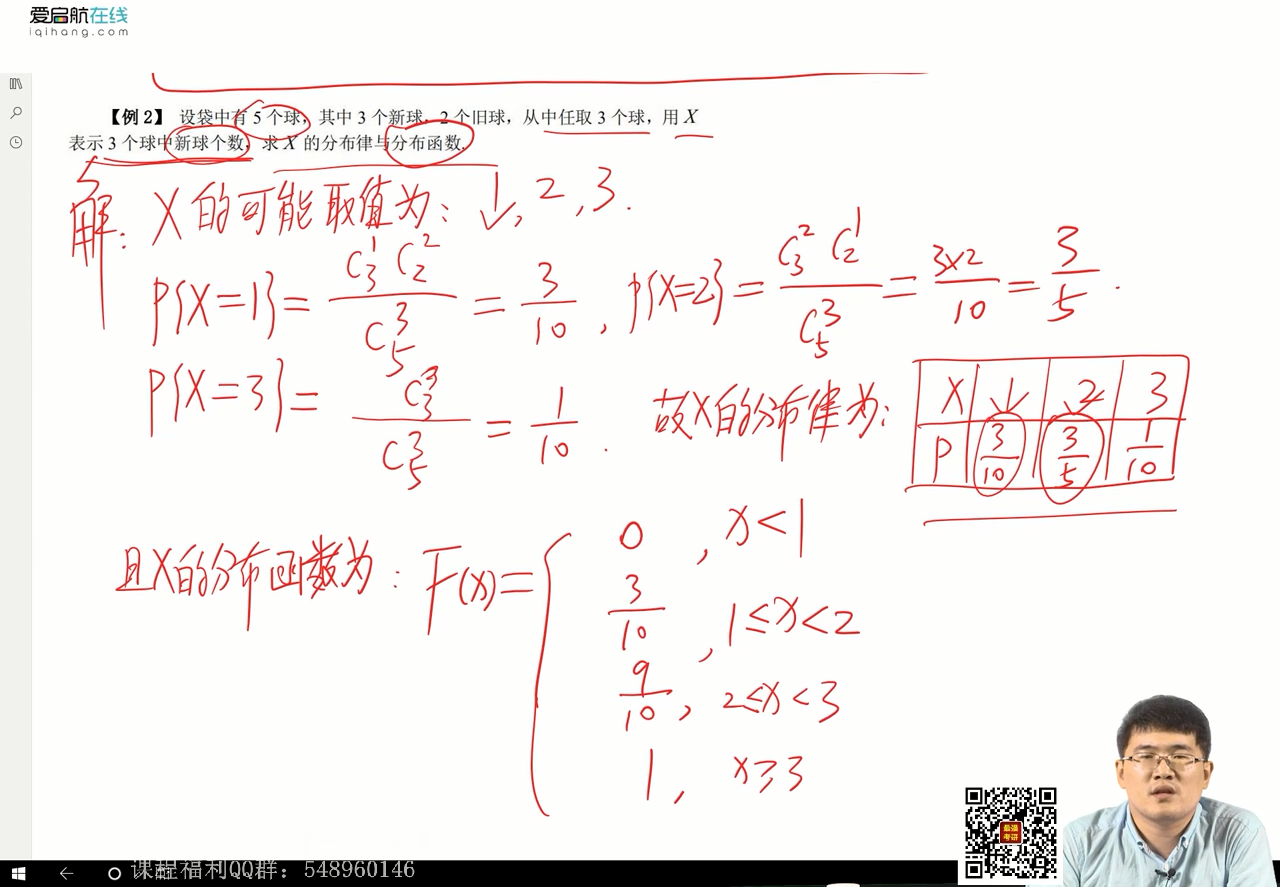 爱启航在线
iqihang.com
【例2】 设袋中有 5 个球，其中 3 个新球，2 个旧球，从中任取 3 个球，用 X
表示 3 个球中新球个数，求 X 的分布律与分布函数.
解：X的可能取值为：1, 2, 3.
P{X=1}= C₃¹C₂²/C₅³ = 3/10, P{X=2}= C₃²C₂¹/C₅³ = 3×2/10 = 3/5.
P{X=3}= C₃³/C₅³ = 1/10. 故X的分布律为：
X 1 2 3
P 3/10 3/5 1/10
且X的分布函数为：F(x)=
0, x<1
3/10, 1≤x<2
9/10, 2≤x<3
1, x≥3
最强
考研
课程福利QQ群：548960146